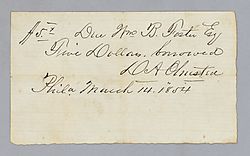 $5 Due Wm B. Foster Esq
Five Dollars borrowed
Phila March 14. 1854